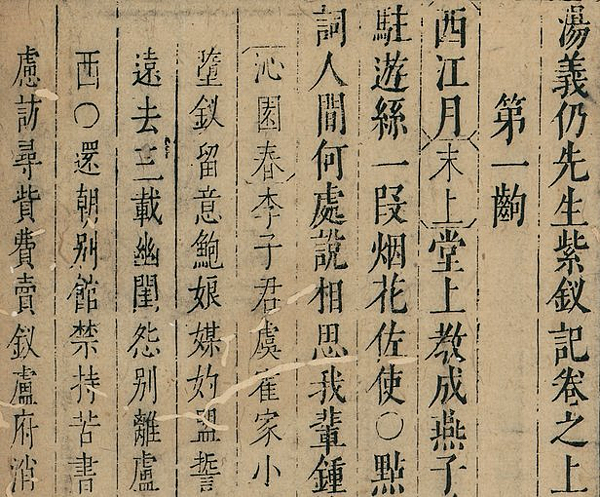 湯義仍先生紫釵記卷之上
第一齣
西江月末上堂上教成燕子
駐遊絲一段烟花佐使○點
詞人間何處說相思我輩鍾
沁園春李子君虞霍家小
墮釵留意鮑娘媒妁盟誓
遠去三載幽閨怨別離盧
西○還朝别館禁持苦書
慮訪尋貲費賣釵盧府消